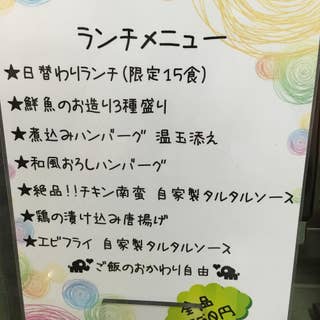 ランチメニュー
★日替わりランチ(限定15食)
★鮮魚のお造り3種盛り
★煮込みハンバーグ 温玉添え
★和風おろしハンバーグ
★絶品!!チキン南蛮 自家製タルタルソース
★鶏の漬け込み唐揚げ
★エビフライ 自家製タルタルソース
ご飯のおかわり自由
全品